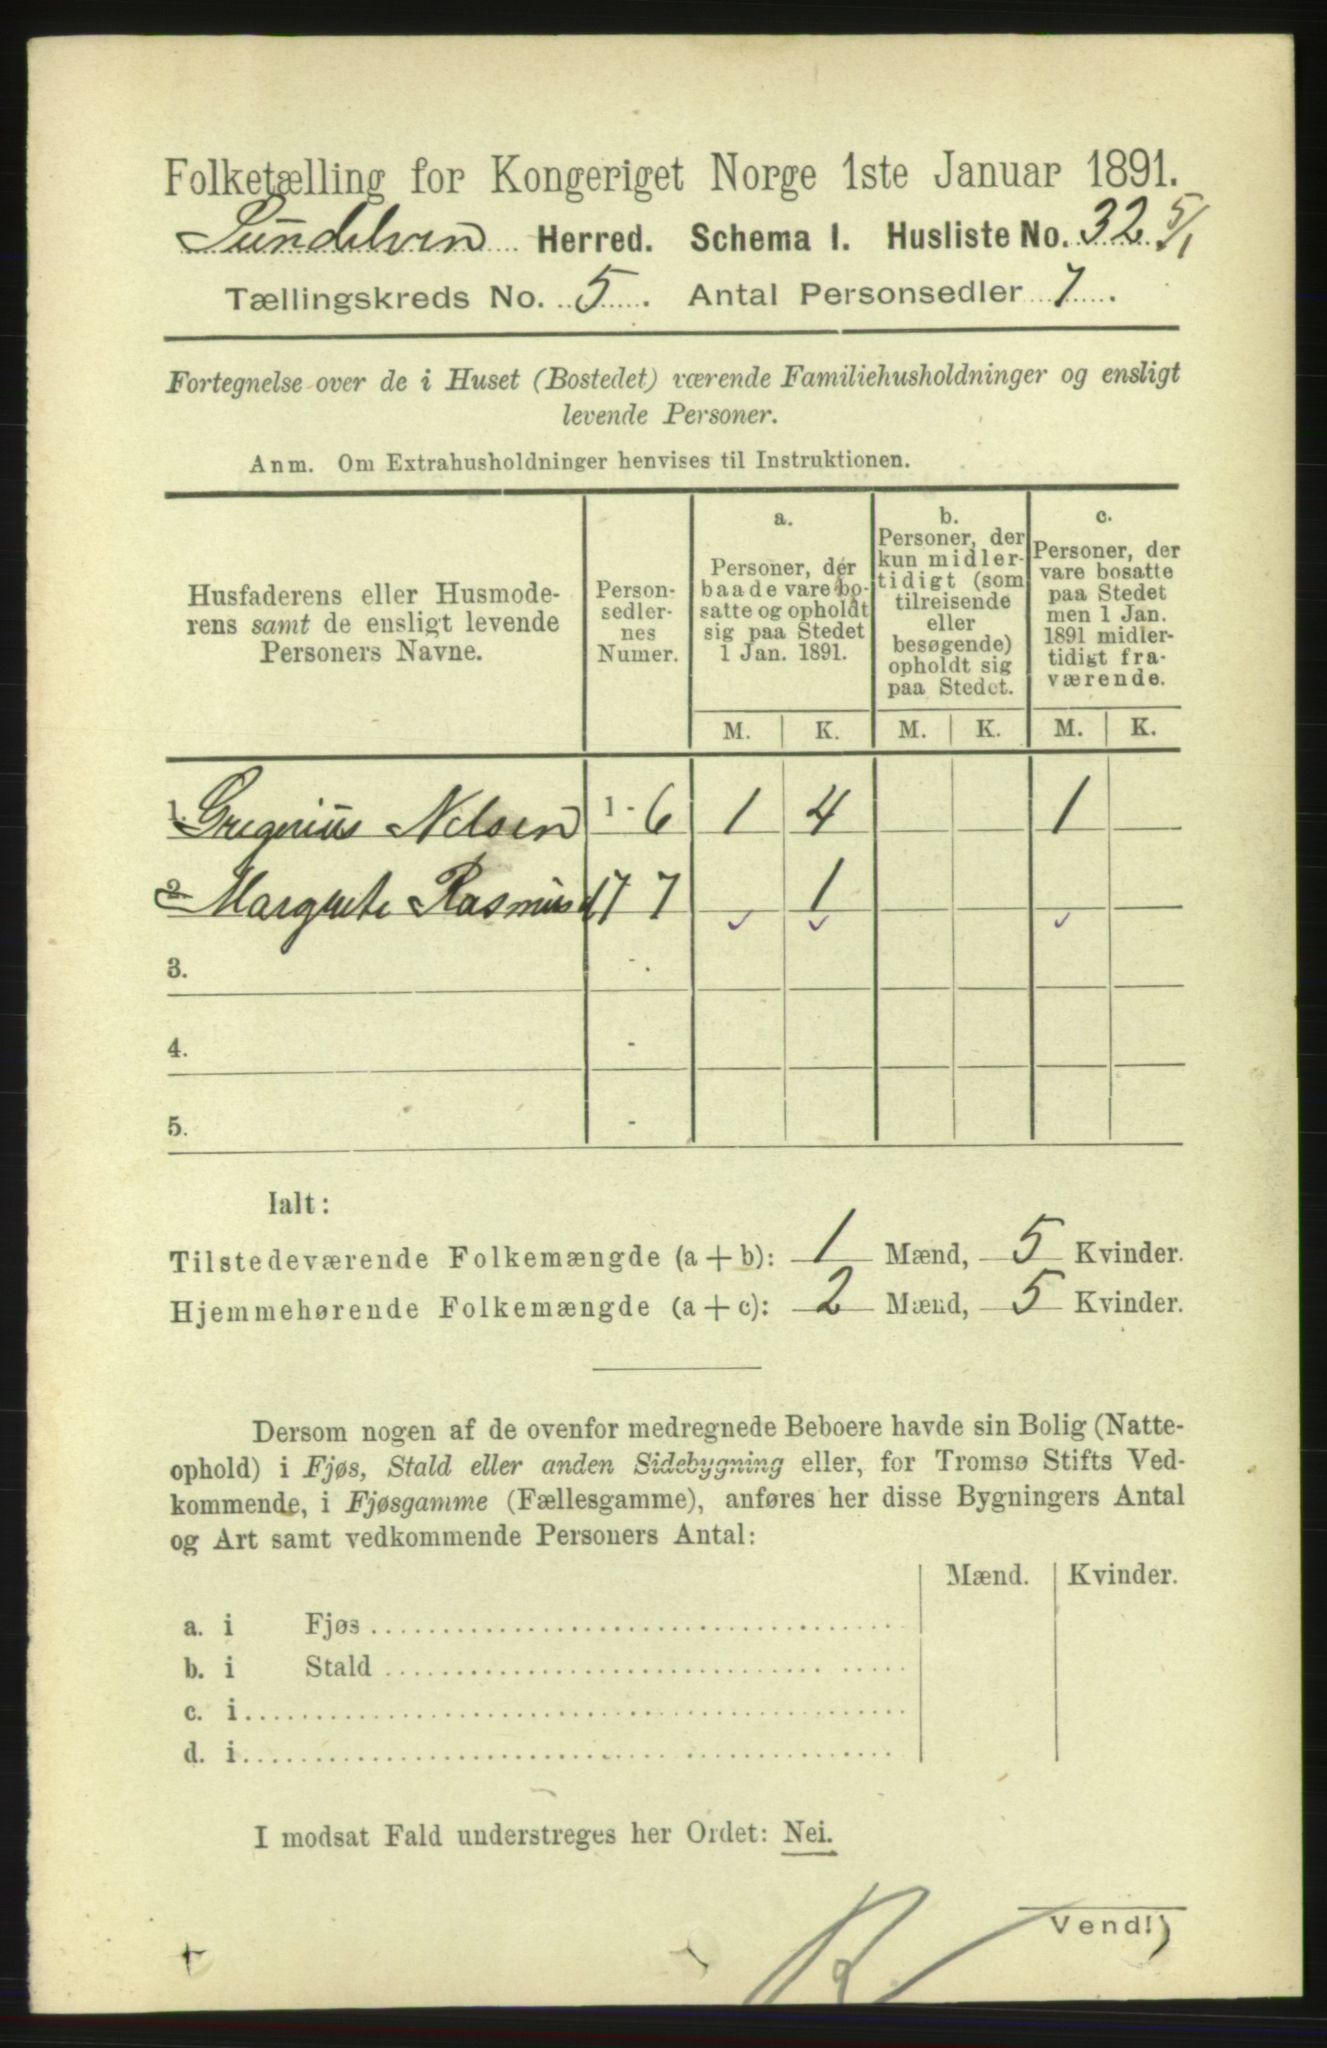 Folketælling for Kongeriget Norge 1ste Januar 1891.
Sündelven Herred. Schema I. Husliste No. 32 5/1
Tællingskreds No. 5. Antal Personsedler 7.
Fortegnelse over de i Huset (Bostedet) værende Familiehusholdninger og ensligt
levende Personer.
Anm. Om Extrahusholdninger henvises til Instruktionen.
Husfaderens eller Husmode-
rens samt de ensligt levende
Personers Navne.
Person-
sedler-
nes
Numer.
a.
Personer, der
baade vare bo-
satte og opholdt
sig paa Stedet
1 Jan. 1891.
b.
Personer, der
kun midler-
tidigt (som
tilreisende
eller
besøgende)
opholdt sig
paa Stedet.
c.
Personer, der
vare bosatte
paa Stedet
men 1 Jan.
1891 midler-
tidigt fra-
værende.
M. K. M. K. M. K.
1. Gregorius Nelsen 1 - 6 1 4 1
2. Margrete Rasmusd 7 7 1
3. - .
4. -
5. -
Ialt:
Tilstedeværende Folkemængde (a + b): 1 Mænd, 5 Kvinder.
Hjemmehørende Folkemængde (a + c): 2 Mænd, 5 Kvinder.
Dersom nogen af de ovenfor medregnede Beboere havde sin Bolig (Natte-
ophold) i Fjøs, Stald eller anden Sidebygning eller, for Tromsø Stifts Ved-
kommende, i Fjøsgamme (Fællesgamme), anføres her disse Bygningers Antal
og Art samt vedkommende Personers Antal:
Mænd. Kvinder.
a. i Fjøs
b. i Stald
c. i
d. i
I modsat Fald understreges her Ordet: Nei.
Vend!